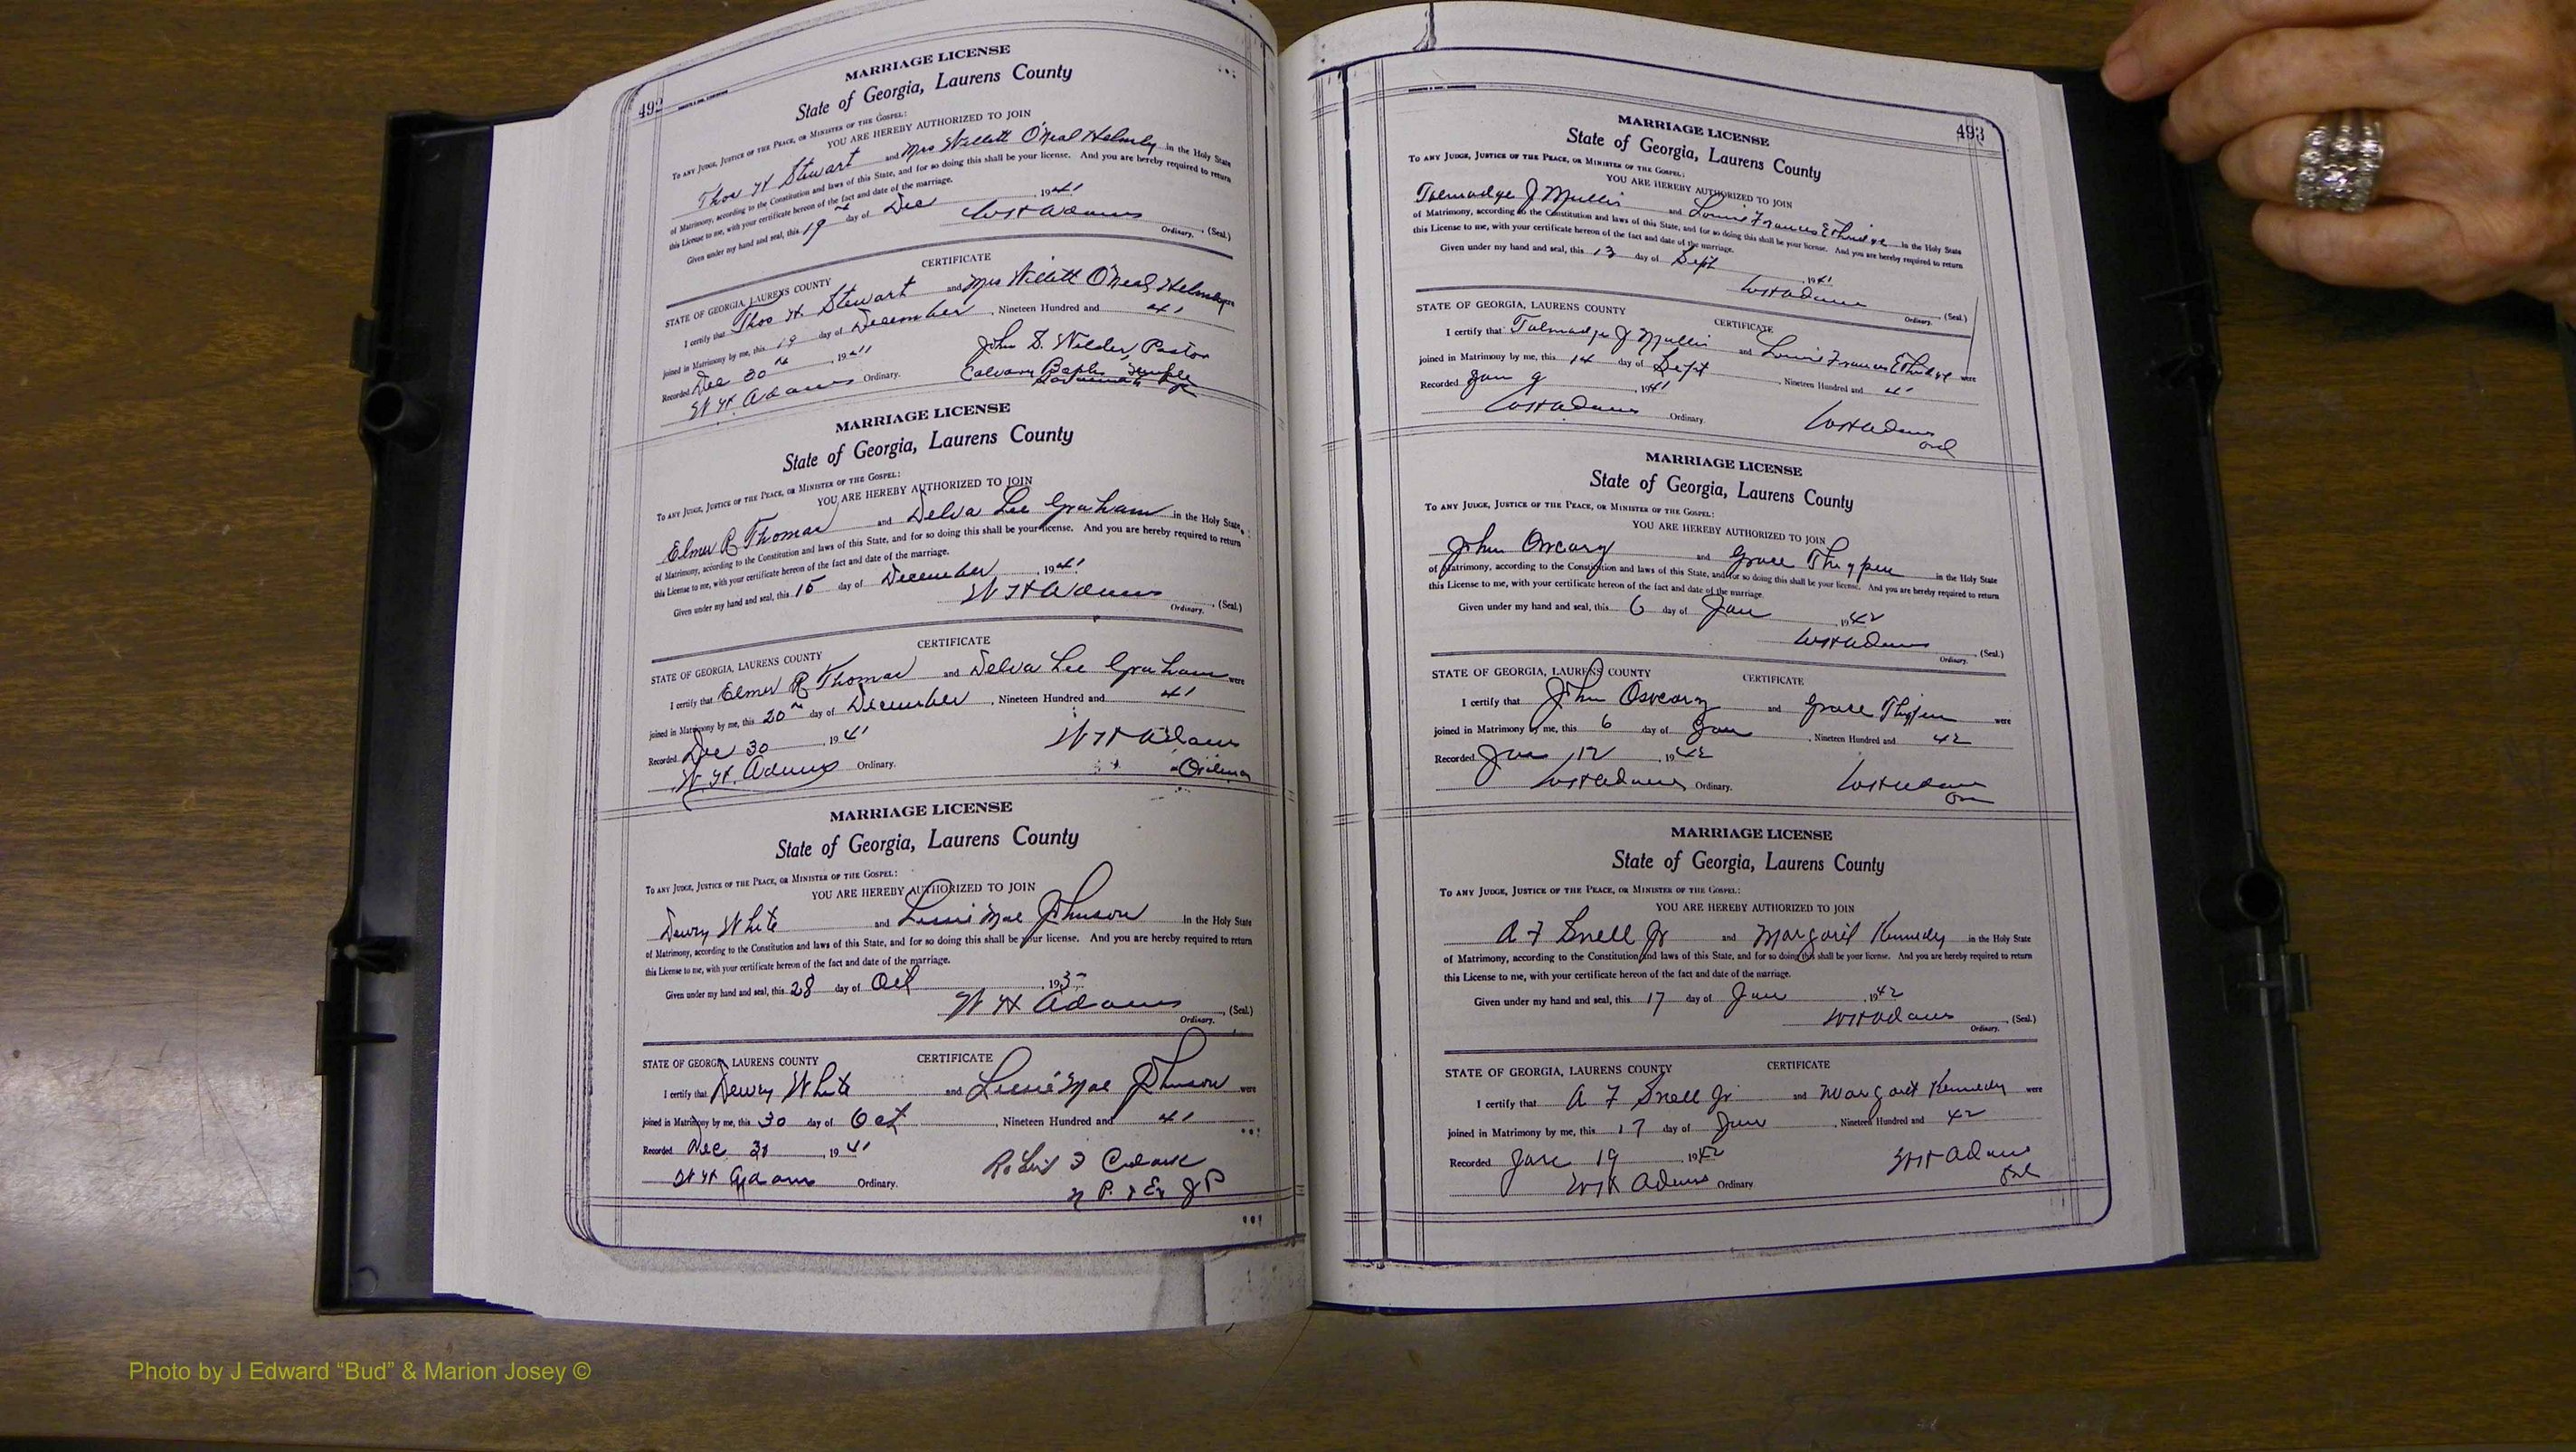 492
MARRIAGE LICENSE
State of Georgia, Laurens County
To any Judge, Justice of the Peace, or Minister of the Gospel:
YOU ARE HEREBY AUTHORIZED TO JOIN
Thos H Stewart and Mrs Willett O'Neal Helmly in the Holy State
of Matrimony, according to the Constitution and laws of this State, and for so doing this shall be your license. And you are hereby required to return
this License to me, with your certificate hereon of the fact and date of the marriage.
Given under my hand and seal, this 19th day of Dec 1941
W H Adams (Seal.)
Ordinary.
CERTIFICATE
STATE OF GEORGIA, LAURENS COUNTY
I certify that Thos H. Stewart and Mrs Willett O'Neal Helmly were
joined in Matrimony by me, this 19 day of December, Nineteen Hundred and 41
Recorded Dec 30th, 1941 John S. Wilder, Pastor
W H Adams Ordinary. Calvary Baptist Temple
MARRIAGE LICENSE
State of Georgia, Laurens County
To any Judge, Justice of the Peace, or Minister of the Gospel:
YOU ARE HEREBY AUTHORIZED TO JOIN
Elmer R Thomas and Delva Lee Graham in the Holy State
of Matrimony, according to the Constitution and laws of this State, and for so doing this shall be your license. And you are hereby required to return
this License to me, with your certificate hereon of the fact and date of the marriage.
Given under my hand and seal, this 15 day of December, 1941
W H Adams (Seal.)
Ordinary.
CERTIFICATE
STATE OF GEORGIA, LAURENS COUNTY
I certify that Elmer R Thomas and Delva Lee Graham were
joined in Matrimony by me, this 20th day of December, Nineteen Hundred and 41
Recorded Dec 30, 1941 W H Adams
W. H. Adams Ordinary. Ordinary
MARRIAGE LICENSE
State of Georgia, Laurens County
To any Judge, Justice of the Peace, or Minister of the Gospel:
YOU ARE HEREBY AUTHORIZED TO JOIN
Dewry White and Lessie Mae Johnson in the Holy State
of Matrimony, according to the Constitution and laws of this State, and for so doing this shall be your license. And you are hereby required to return
this License to me, with your certificate hereon of the fact and date of the marriage.
Given under my hand and seal, this 28 day of Oct, 193
W H Adams (Seal.)
Ordinary.
STATE OF GEORGIA, LAURENS COUNTY CERTIFICATE
I certify that Dewry White and Lessie Mae Johnson were
joined in Matrimony by me, this 30 day of Oct, Nineteen Hundred and 41
Recorded Dec 31, 1941
W H Adams Ordinary.
N P. & Ex J P
493
MARRIAGE LICENSE
State of Georgia, Laurens County
To any Judge, Justice of the Peace, or Minister of the Gospel:
YOU ARE HEREBY AUTHORIZED TO JOIN
Talmadge J Mullis and Louise Frances Ethridge in the Holy State
of Matrimony, according to the Constitution and laws of this State, and for so doing this shall be your license. And you are hereby required to return
this License to me, with your certificate hereon of the fact and date of the marriage.
Given under my hand and seal, this 13 day of Sept 1941
W H Adams (Seal.)
Ordinary.
STATE OF GEORGIA, LAURENS COUNTY CERTIFICATE
I certify that Talmadge J Mullis and Louise Frances Ethridge were
joined in Matrimony by me, this 14 day of Sept, Nineteen Hundred and 41
Recorded Jan 9, 1941
W H Adams Ordinary. W H Adams
Ord
MARRIAGE LICENSE
State of Georgia, Laurens County
To any Judge, Justice of the Peace, or Minister of the Gospel:
YOU ARE HEREBY AUTHORIZED TO JOIN
John and Grace Thigpen in the Holy State
of Matrimony, according to the Constitution and laws of this State, and for so doing this shall be your license. And you are hereby required to return
this License to me, with your certificate hereon of the fact and date of the marriage.
Given under my hand and seal, this 6 day of Jan, 1942
W H Adams (Seal.)
Ordinary.
STATE OF GEORGIA, LAURENS COUNTY CERTIFICATE
I certify that John and Grace Thigpen were
joined in Matrimony by me, this 6 day of Jan, Nineteen Hundred and 42
Recorded Jan 12, 1942
W H Adams Ordinary. W H Adams
MARRIAGE LICENSE
State of Georgia, Laurens County
To any Judge, Justice of the Peace, or Minister of the Gospel:
YOU ARE HEREBY AUTHORIZED TO JOIN
A F Snell Jr and Margaret Kennedy in the Holy State
of Matrimony, according to the Constitution and laws of this State, and for so doing this shall be your license. And you are hereby required to return
this License to me, with your certificate hereon of the fact and date of the marriage.
Given under my hand and seal, this 17 day of Jan, 1942
W H Adams (Seal.)
Ordinary.
STATE OF GEORGIA, LAURENS COUNTY CERTIFICATE
I certify that A F Snell Jr and Margaret Kennedy were
joined in Matrimony by me, this 17 day of Jan, Nineteen Hundred and 42
Recorded Jan 19 1942 W H Adams
W H Adams Ordinary Ord
Photo by J Edward “Bud” & Marion Josey ©